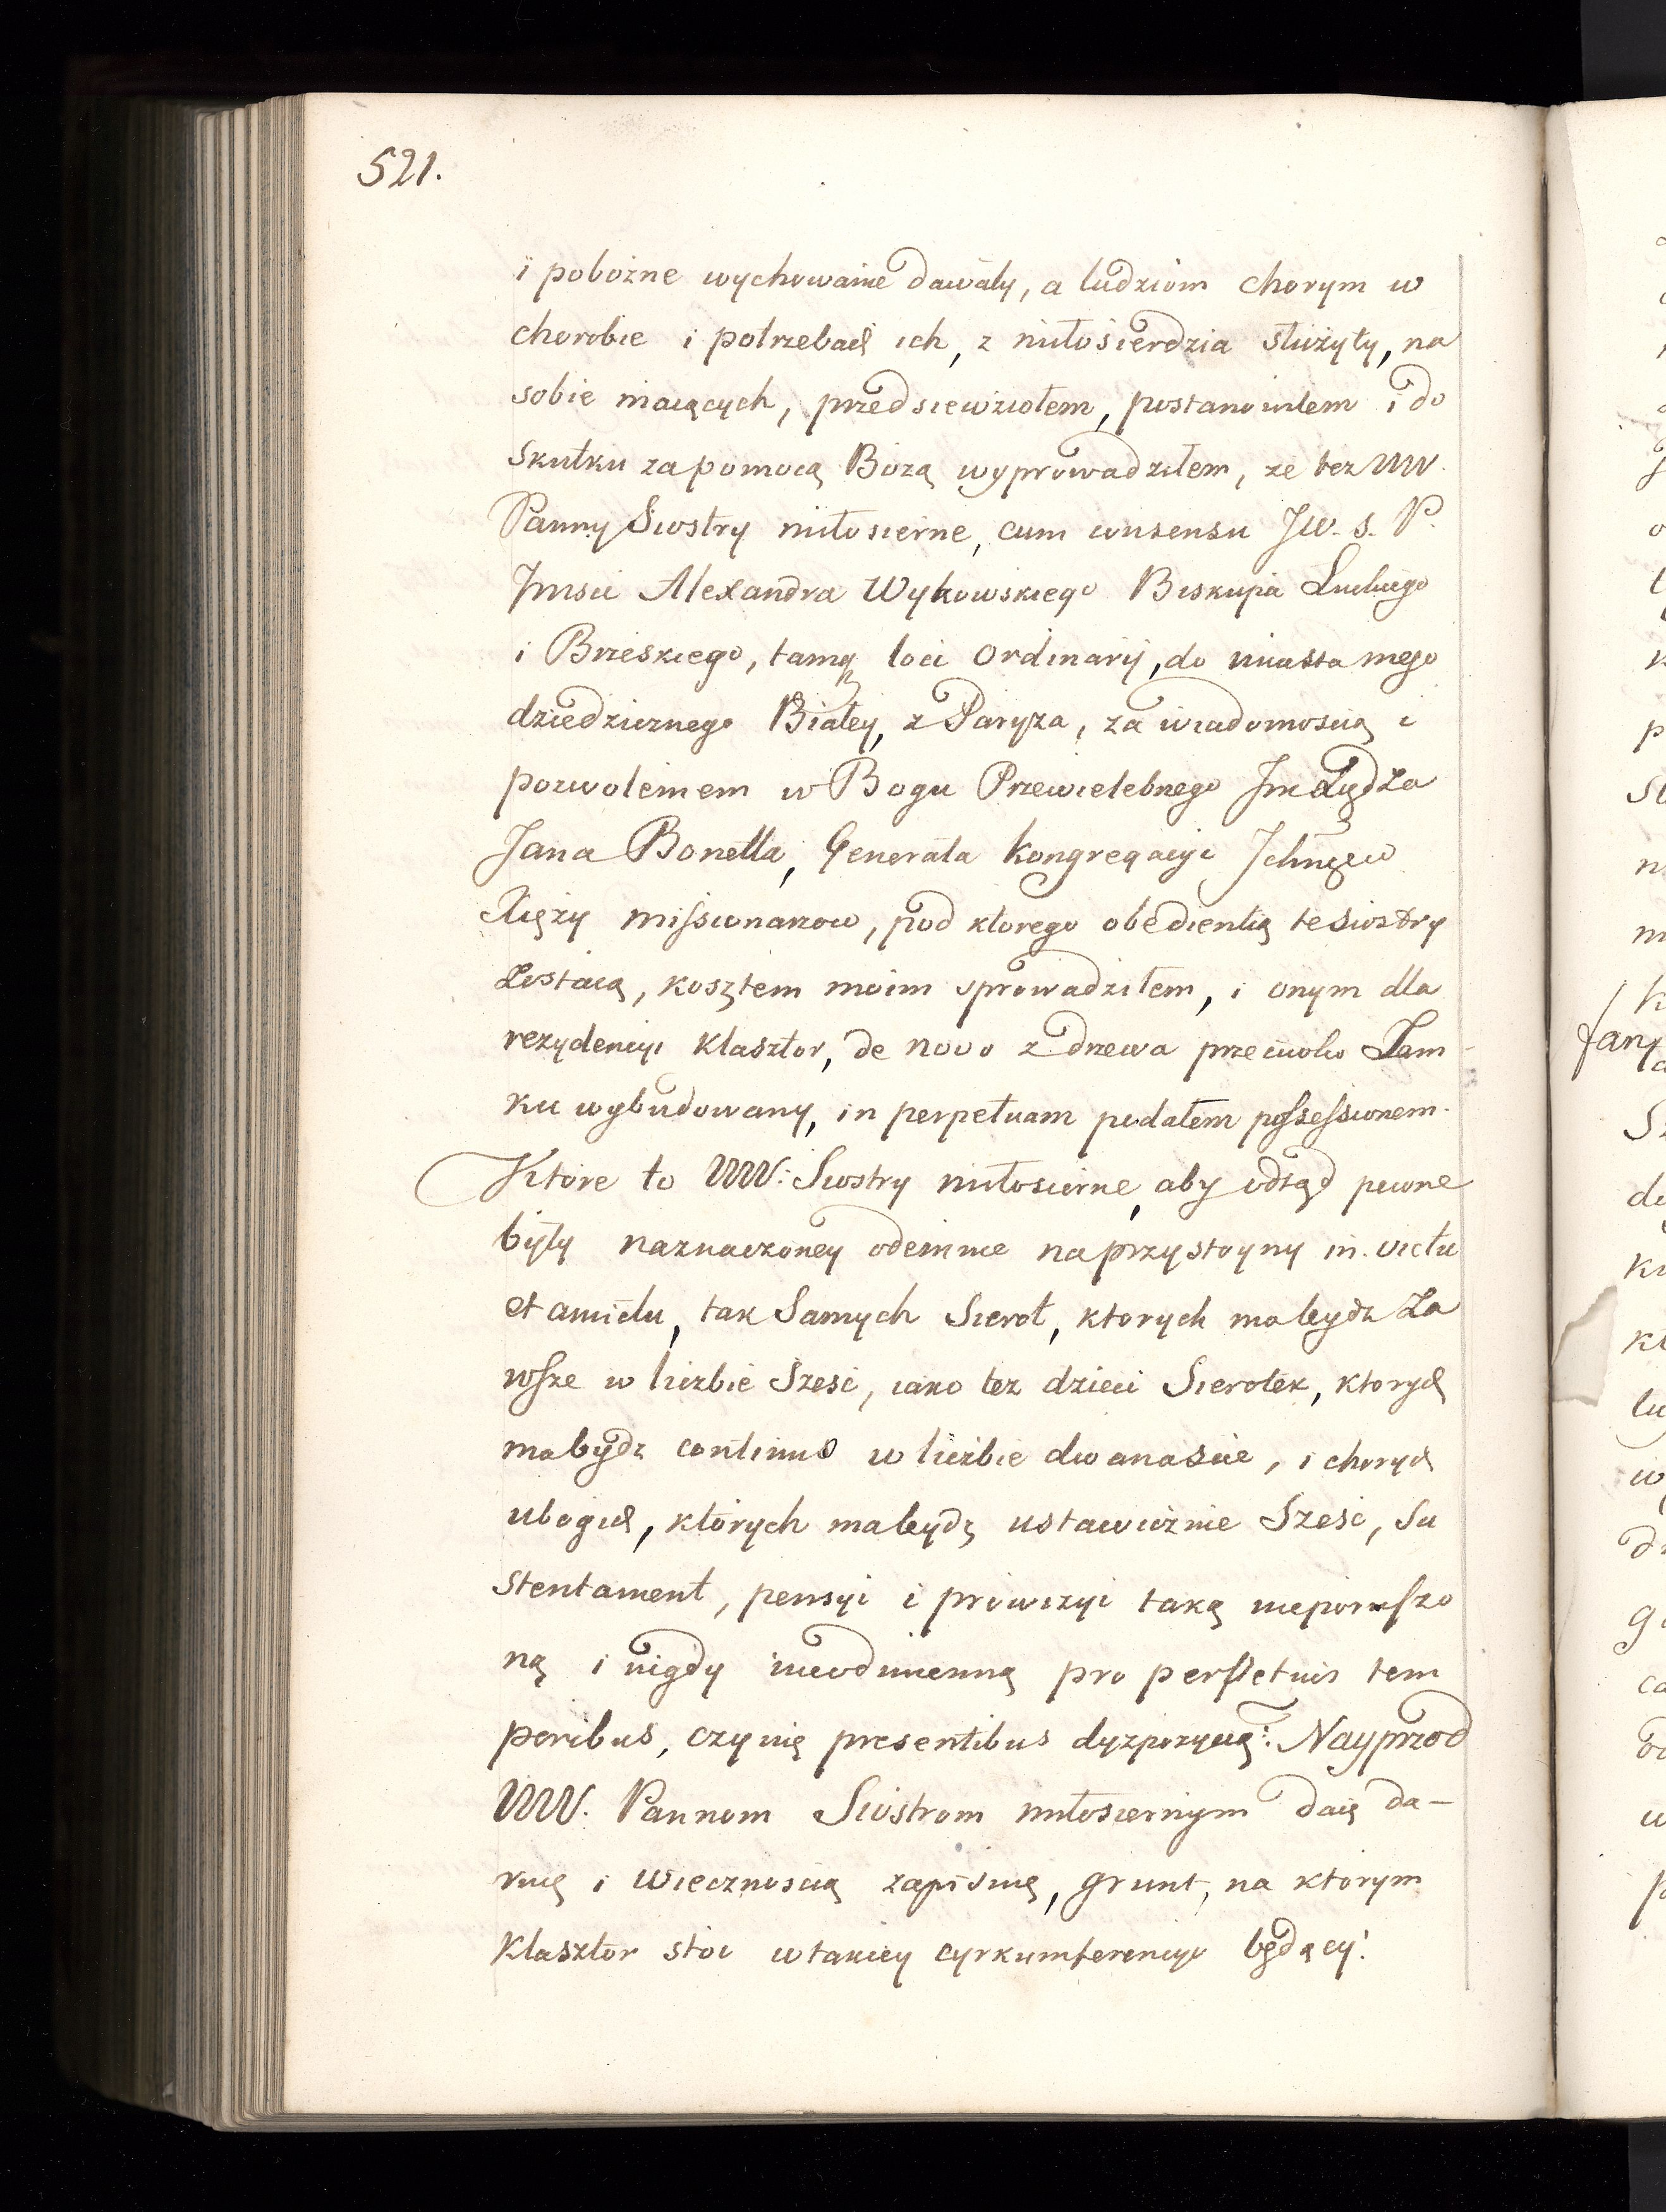 521.
i pobożne wychowanie dawały, a ludziom chorym w
chorobie i potrzebach ich, z miłosierdzia służyły, na
sobie maiących, przedsiewziołem, postanowiłem i do
skutku za pomocą Bożą wyprowadziłem, ze tez WW.
Panny Siostry miłosierne, cum consensu JW. s. P.
Jmsci Alexandra Wyhowskiego Biskupa Luckiego
i Brzeskiego, tamq loci Ordinarij, do miasta mego
dziedzicznego Białey, z Paryża, za wiadomoscią i
pozwoleniem w Bogu Przewielebnego Jm Xiędza
Jana Bonetta, Generała Kongregacyi Ichmsciow
Xięży missionarzow, pod ktorego obedientią te siostry
zostaią, kosztem moim sprowadziłem, i onym dla
rezydencyi klasztor, de novo z drzewa przeciwko Zam-
ku wybudowany, in perpetuam podałem possessionem.
Ktore to WW: Siostry miłosierne, aby odtąd pewne
były naznaczoney odemnie na przystoyny in victu
et amictu, tak Samych Sierot, ktorych ma bydz za
wsze w liczbie Szesć, iako tez dzieci Sierotek, ktorych
ma bydz continuo w liczbie dwanascie, i chorych
ubogich, których ma bydz ustawicznie Szesć, Su
stentament, pensyi i prowizyi taką nieporuszo
ną i nigdy nieodmienną pro perpetuis tem
poribus, czynię presentibus dyzpozycyą: Nayprzod
WW. Pannom Siostrom miłosiernym daię da-
ruię i wiecznoscią zapisuię, grunt, na ktorym
Klasztor stoi w takiey cyrkumferencyi będący: